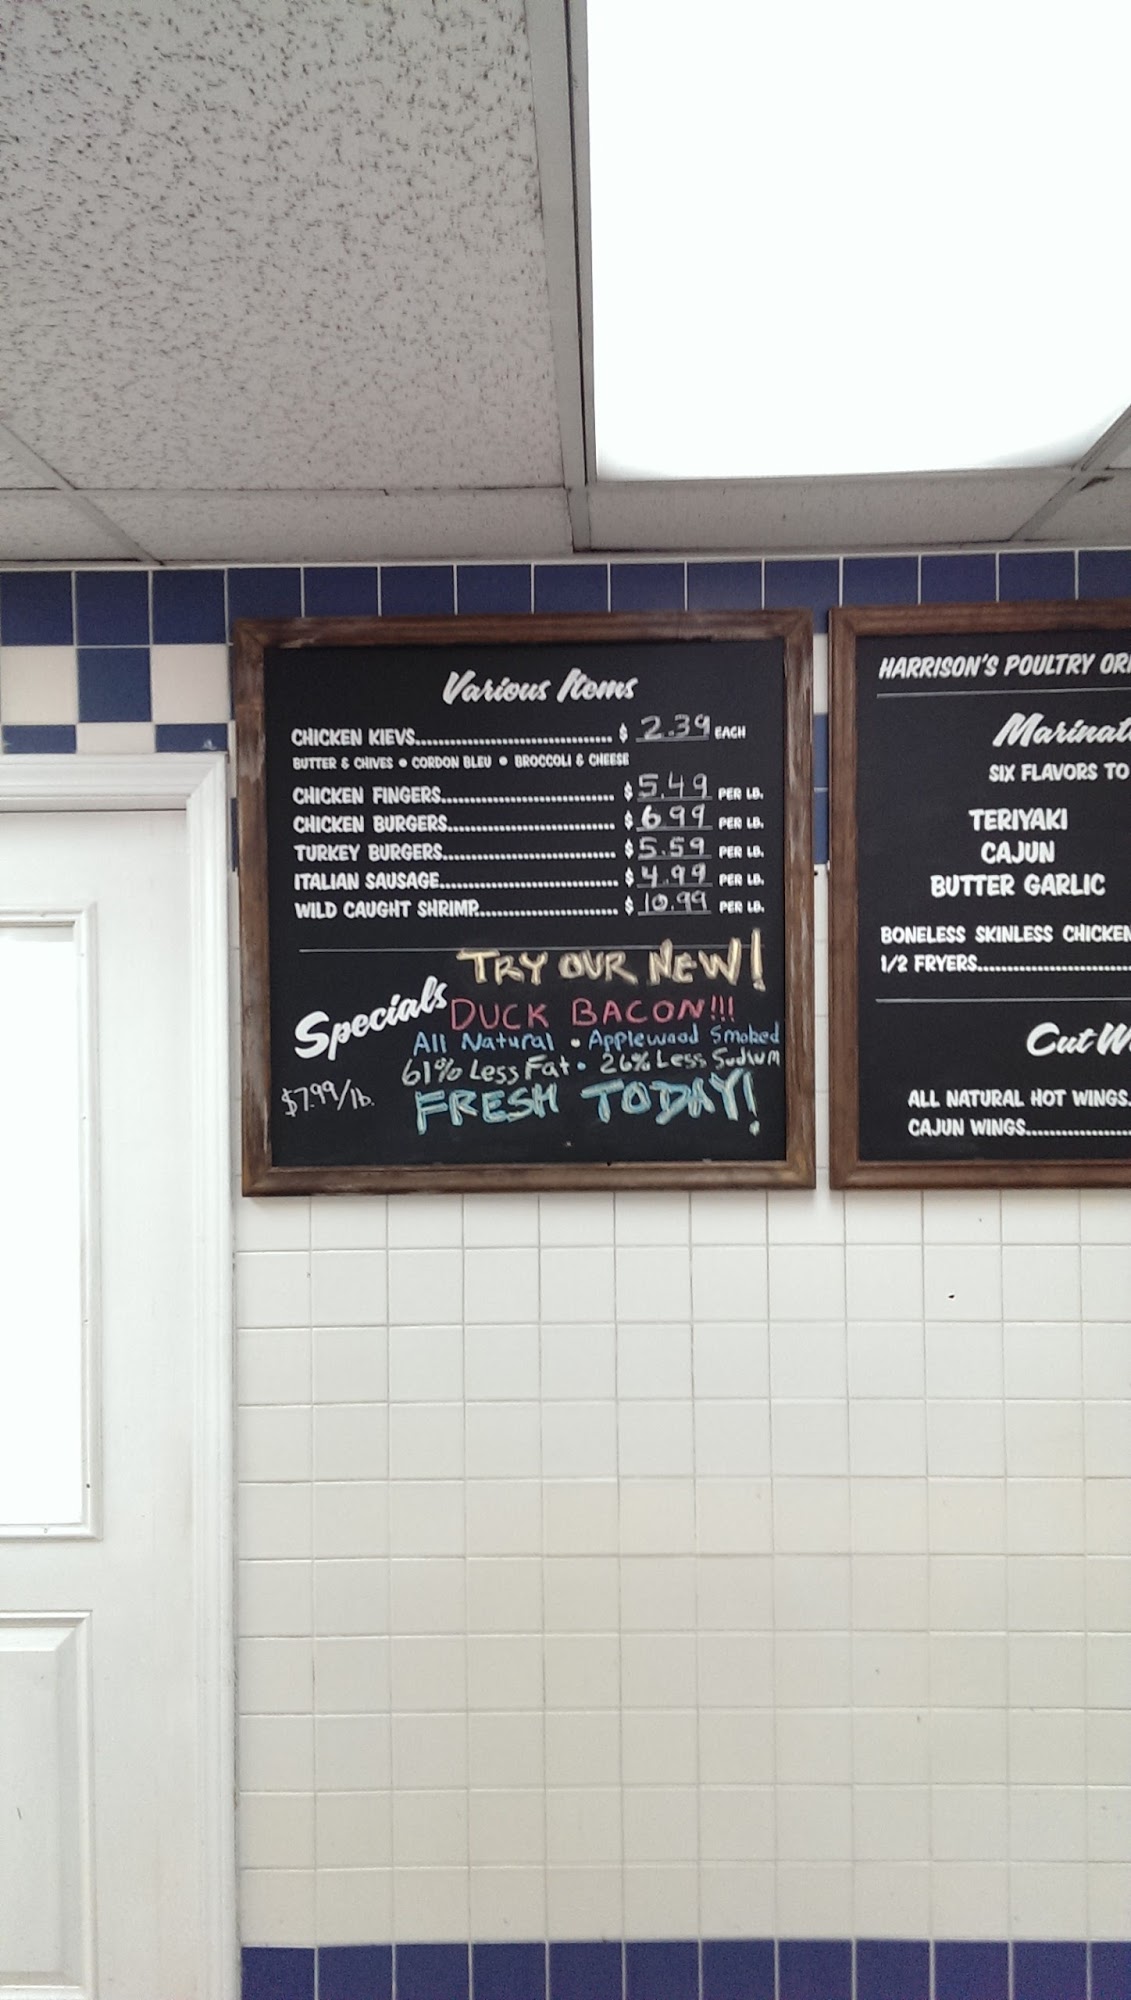 Various Items
CHICKEN KIEVS........................................ $ 2.39 EACH
BUTTER & CHIVES • CORDON BLEU • BROCCOLI & CHEESE
CHICKEN FINGERS................................... $ 5.49 PER LB.
CHICKEN BURGERS.................................. $ 6.99 PER LB.
TURKEY BURGERS................................... $ 5.59 PER LB.
ITALIAN SAUSAGE.................................... $ 4.99 PER LB.
WILD CAUGHT SHRIMP............................ $ 10.99 PER LB.
Specials
TRY OUR NEW!
DUCK BACON!!!
All Natural • Applewood Smoked
61% Less Fat • 26% Less Sodium
$7.99/lb.
FRESH TODAY!
HARRISON'S POULTRY
SIX FLAVORS TO
TERIYAKI
CAJUN
BUTTER GARLIC
BONELESS SKINLESS CHICKEN
1/2 FRYERS........................
Cut
ALL NATURAL HOT WINGS.
CAJUN WINGS................